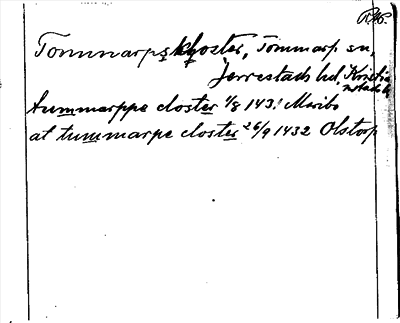 Tommarps kloster, Tommarp sn,
Jerrestads hd, Kristia
nstads l.
tummarppe closter 1/8 143. Maribo
at tummarpe closter 26/9 1432 Olstorp